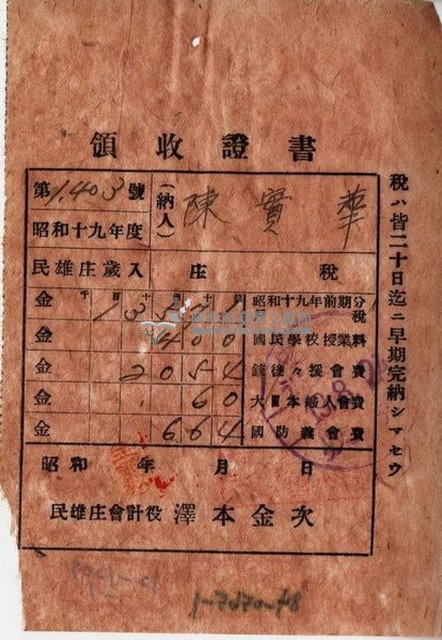 領收證書
第1,403號
(納人) 陳寶華
昭和十九年度
民雄庄歲入 庄稅
金 昭和十九年前期分稅
金 400 國民學校授業料
金 2054 銃後々援會費
金 60 大日本婦人會費
金 664 國防義會費
昭和 年 月 日
民雄庄會計役 澤本金次
稅ハ皆二十日迄ニ早期完納シマセウ